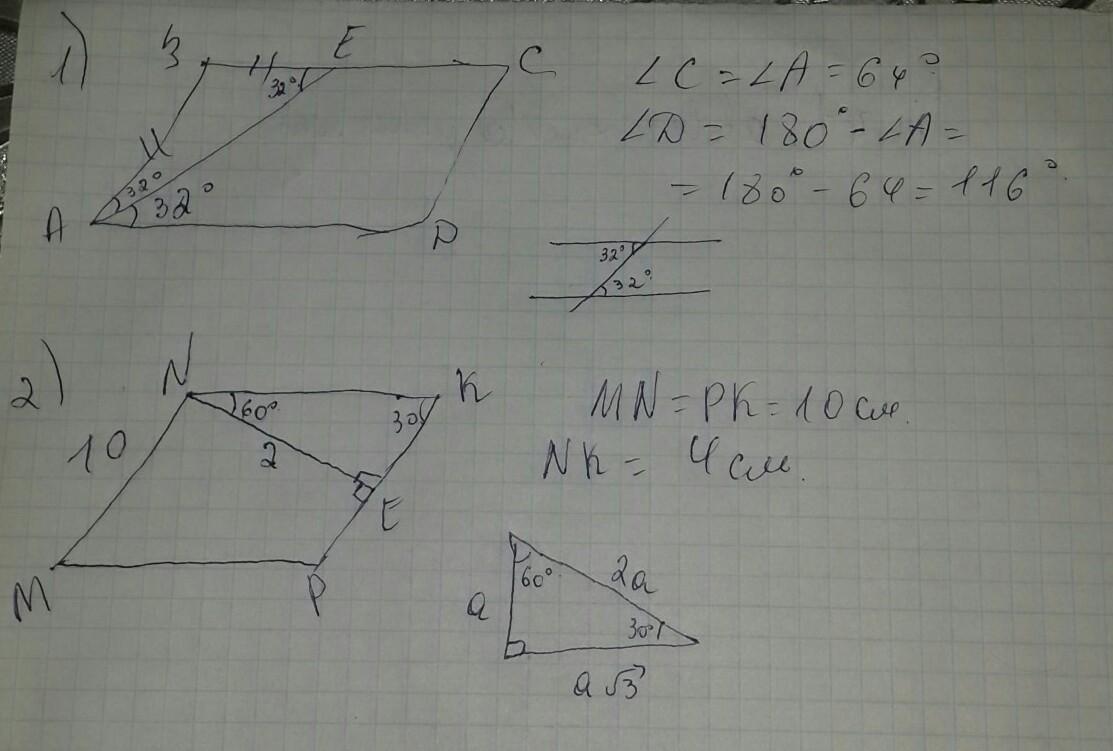 1)
B E C
32°
32°
32°
A D
∠C = ∠A = 64°
∠D = 180° - ∠A =
= 180° - 64 = 116°
32°
32°
2)
N K
60° 30
10 2
E
M P
MN = PK = 10 см.
NK = 4 см.
60° 2a
a 30°
a√3